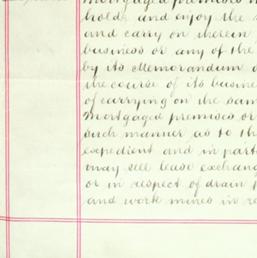 mortgaged premises
hold and enjoy the
and carry on therein
business or any of the
by its Memorandum
the course of its busine
of carrying on the sam
mortgaged premises or
such manner as to th
expedient and in part
may sell lease exchang
or in respect of drain
and work mines in re